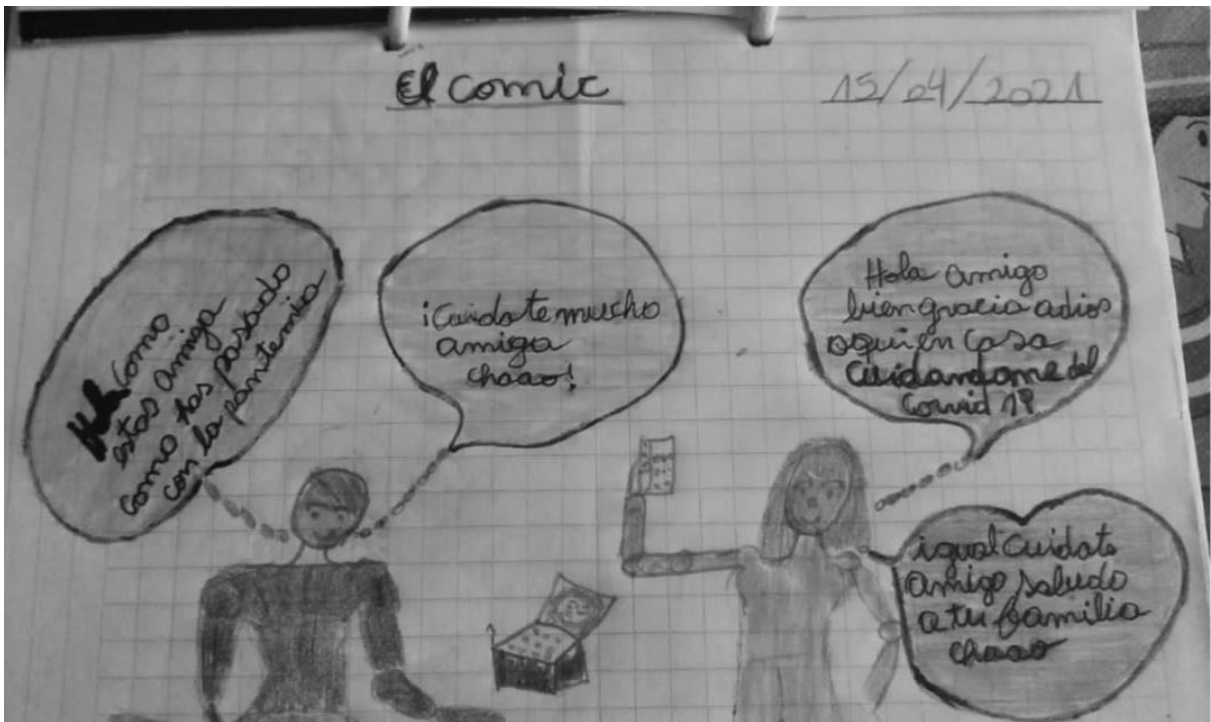 El comic
15/04/2021
Hola como
estas amiga
como has pasado
con la pantemia
¡Cuidate mucho
amiga
chaao!
Hola amigo
bien gracia adios
aqui en casa
cuidandome del
Corvid 19
igual cuidate
amigo saludo
a tu familia
chaao